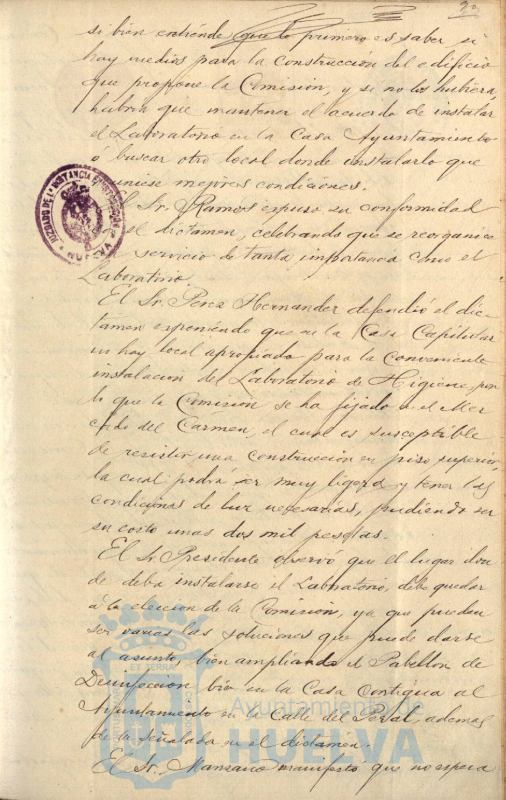 si bien entiende que lo primero es saber si
hay medios para la construcción del edificio
que propone la Comisión, y si no los hubiera,
habria que mantener el acuerdo de instalar
el Laboratorio en la Casa Ayuntamiento
ó buscar otro local donde instalarlo que
reuniese mejores condiciones.
El Sr. Ramos expuso su conformidad
el dictamen, celebrando que se reorganice
servicio de tanta importancia como el
Laboratorio.
El Sr. Perez Hernandez defendió el dic-
tamen exponiendo que en la Casa Capitular
no hay local apropiado para la conveniente
instalacion del Laboratorio de Higiene, por
lo que la Comisión se ha fijado en el Mer
cado del Carmen, el cual es susceptible
de resistir una construccion en piso superior,
la cual podrá ser muy ligera y tener las
condiciones de luz necesarias, pudiendo ser
su costo unas dos mil pesetas.
El Sr. Presidente observó que el lugar don
de deba instalarse el Laboratorio, debe quedar
á la eleccion de la Comisión, ya que pueden
ser varias las soluciones que puede darse
al asunto, bien ampliando el Pabellon de
Desinfeccion bien en la Casa contigua al
Ayuntamiento en la Calle del además
de la señalada en el dictamen.
El Sr. Manzano manifestó que no espera
JUZGADO DE 1ª INSTANCIA E INSTRUCCION
HUELVA
Ayuntamiento de
HUELVA